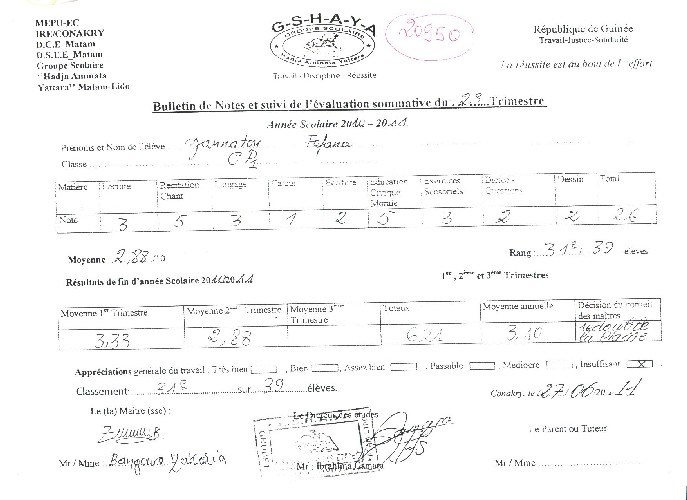 MEPU-EC
IRE/CONAKRY
D.C.E Matam
D.S.E.E Matam
Groupe Scolaire
"Hadja Aminata
Yattara" Matam-Lido
G-S-H-A-Y-A
GROUPE SCOLAIRE
Hadja Aminata Yattara
Travail - Discipline - Réussite
20950
République de Guinée
Travail-Justice-Solidarité
La réussite est au bout de l'effort
Bulletin de Notes et suivi de l'évaluation sommative du 2è Trimestre
Année Scolaire 2010 – 2011
Prénoms et Nom de l'élève Fofana
Classe
Matière Lecture Récitation Chant Langage Calcul Ecriture Education Civique Morale Exercices Sensoriels Dessin Total
Note 3 5 3 1 2 5 3 2 2 26
Moyenne 2,88/10 Rang : 31è/39 élèves
Résultats de fin d'année Scolaire 2010/2011 1er, 2ème et 3ème Trimestres
Moyenne 1er Trimestre Moyenne 2ème Trimestre Moyenne 3ème Trimestre Totaux Moyenne annuelle Décision du conseil des maîtres
3,33 2,88 6,21 3,10 redouble la
Appréciations générale du travail : Très bien , Bien , Assez bien , Passable , Médiocre , Insuffisant X
Classement: 31è sur 39 élèves. Conakry, le 27/06/2011
Le (la) Maître (sse) : Le Directeur des études Le Parent ou Tuteur
Mr / Mme : Bangoura Mr : Ibrahima Camara Mr / Mme :